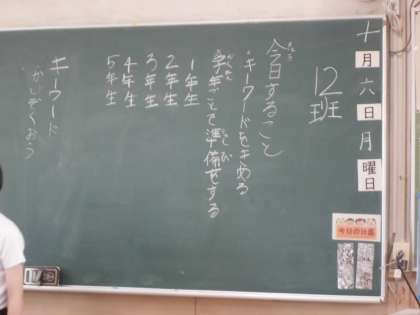 十月六日月曜日
12班
今日すること
・キーワードをきめる
学年ごとで準備をする
1年生
2年生
3年生
4年生
5年生
キーワード
かしぞくおう